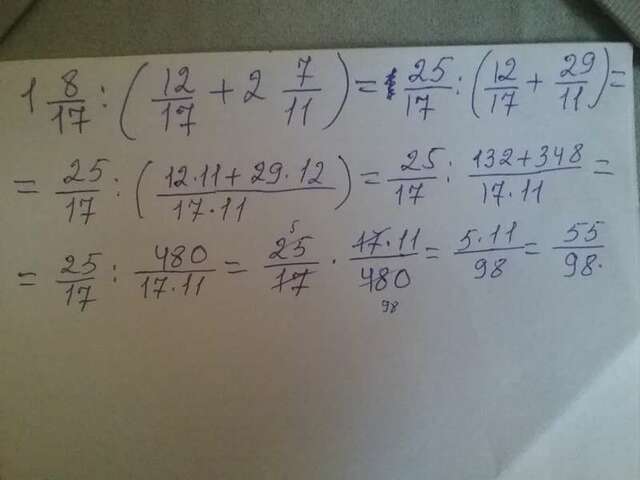 1 8/17 : ( 12/17 + 2 7/11 ) = 25/17 : ( 12/17 + 29/11 ) =
= 25/17 : ( (12·11 + 29·12)/(17·11) ) = 25/17 : (132 + 348)/(17·11) =
= 25/17 : 480/(17·11) = 25/17 5 · (17·11)/480 98 = (5·11)/98 = 55/98.